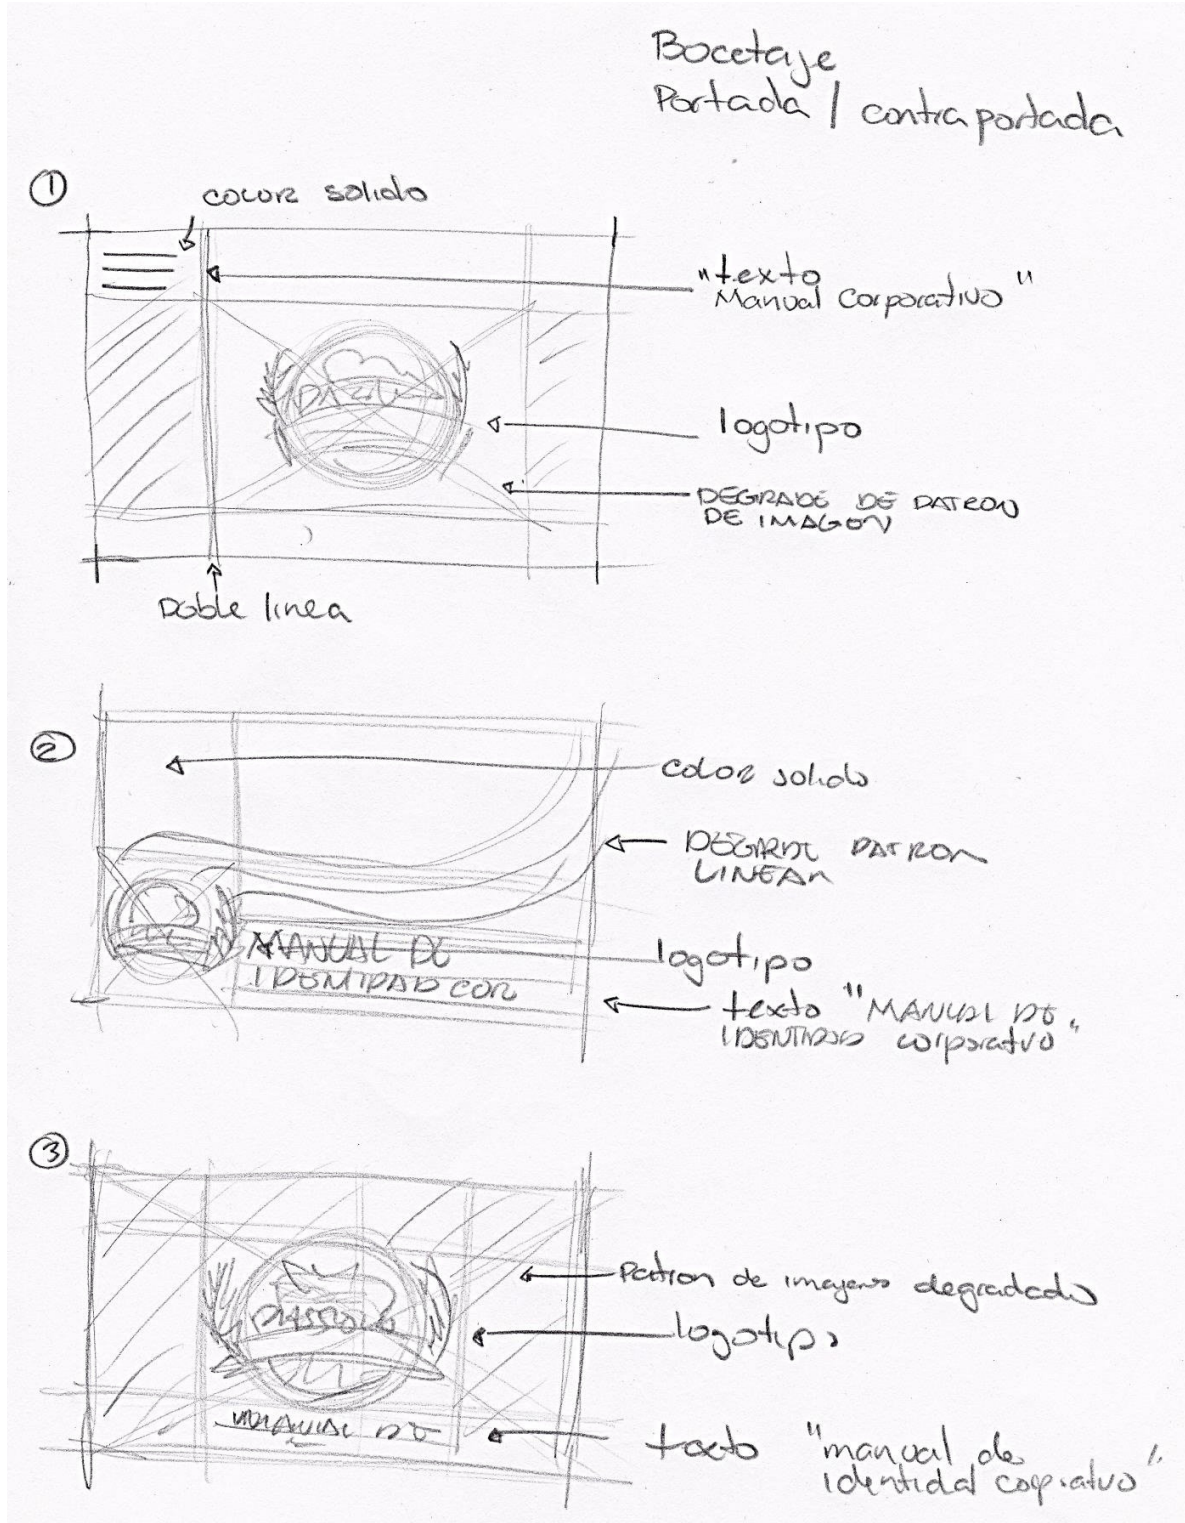 Bocetaje
Portada / contraportada
①
color solido
"texto
Manual Corporativo"
logotipo
DEGRADE DE PATRON
DE IMAGEN
Doble linea
②
color solido
DEGARDE PATRON
LINEAR
MANUAL DE
IDENTIDAD COR
logotipo
texto "MANUAL DE
IDENTIDAD corporativo"
③
Patron de imagenes degradado
logotipo
MANUAL DE
texto "manual de
identidad